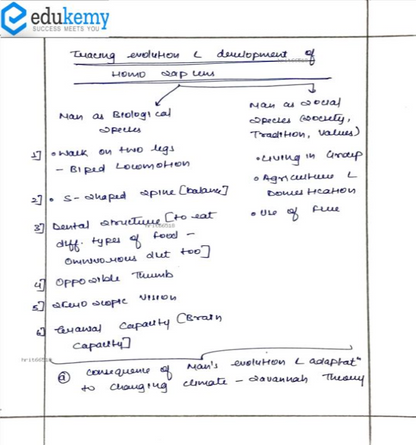 edukemy
SUCCESS MEETS YOU
Tracing evolution & development of
Homo sapiens
Man as Biological
species
1] • Walk on two legs
- Biped Locomotion
2] • S-shaped spine [balance]
3] Dental structure [to eat
diff. types of food -
omnivorous diet too]
4] Opposible Thumb
5] stereoscopic vision
6] Cranial capacity [Brain
capacity]
Man as social
species (society,
Tradition, values)
• Living in Group
• Agriculture &
Domestication
• Use of fire
@ Consequence of Man's evolution & adaptatn
to changing climate - Savannah Theory